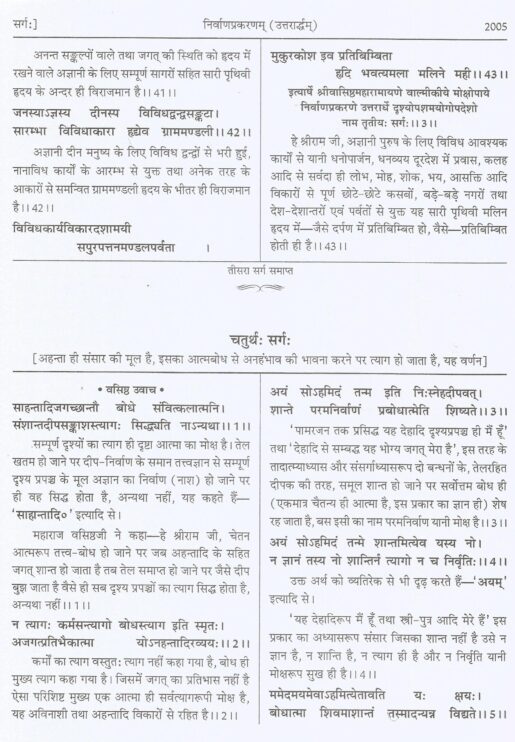 सर्गः]
निर्वाणप्रकरणम् (उत्तरार्द्धम्)
2005
अनन्त सङ्कल्पों वाले तथा जगत् की स्थिति को हृदय में
रखने वाले अज्ञानी के लिए सम्पूर्ण सागरों सहित सारी पृथिवी
हृदय के अन्दर ही विराजमान है।।41।।
जनस्याऽज्ञस्य दीनस्य विविधद्वन्द्वसङ्कटा।
सारम्भा विविधाकारा हृद्येव ग्राममण्डली।।42।।
अज्ञानी दीन मनुष्य के लिए विविध द्वन्द्वों से भरी हुई,
नानाविध कार्यों के आरम्भ से युक्त तथा अनेक तरह के
आकारों से समन्वित ग्राममण्डली हृदय के भीतर ही विराजमान
है।।42।।
विविधकार्यविकारदशामयी
सपुरपत्तनमण्डलपर्वता ।
मुकुरकोश इव प्रतिबिम्बिता
हृदि भवत्यमला मलिने मही।।43।।
इत्यार्षे श्रीवासिष्ठमहारामायणे वाल्मीकीये मोक्षोपाये
निर्वाणप्रकरणे उत्तरार्धे दृश्योपशमयोगोपदेशो
नाम तृतीयः सर्गः।।3।।
हे श्रीराम जी, अज्ञानी पुरुष के लिए विविध आवश्यक
कार्यों से यानी धनोपार्जन, धनव्यय दूरदेश में प्रवास, कलह
आदि से सर्वदा ही लोभ, मोह, शोक, भय, आसक्ति आदि
विकारों से पूर्ण छोटे-छोटे कसबों, बड़े-बड़े नगरों तथा
देश-देशान्तरों एवं पर्वतों से युक्त यह सारी पृथिवी मलिन
हृदय में—जैसे दर्पण में प्रतिबिम्बित हो, वैसे—प्रतिबिम्बित
होती ही है।।43।।
तीसरा सर्ग समाप्त
चतुर्थः सर्गः
[अहन्ता ही संसार की मूल है, इसका आत्मबोध से अनहंभाव की भावना करने पर त्याग हो जाता है, यह वर्णन]
• वसिष्ठ उवाच •
साहन्तादिजगच्छान्तौ बोधे संवित्कलात्मनि।
संशान्तदीपसङ्काशस्त्यागः सिद्ध्यति नाऽन्यथा।।1।।
सम्पूर्ण दृश्यों का त्याग ही दृष्टा आत्मा का मोक्ष है। तेल
खतम हो जाने पर दीप-निर्वाण के समान तत्त्वज्ञान से सम्पूर्ण
दृश्य प्रपञ्च के मूल अज्ञान का निर्वाण (नाश) हो जाने पर
ही वह सिद्ध होता है, अन्यथा नहीं, यह कहते हैं—
'साहान्तादि०' इत्यादि से।
महाराज वसिष्ठजी ने कहा—हे श्रीराम जी, चेतन
आत्मरूप तत्त्व-बोध हो जाने पर जब अहन्तादि के सहित
जगत् शान्त हो जाता है तब तेल समाप्त हो जाने पर जैसे दीप
बुझ जाता है वैसे ही सब दृश्य प्रपञ्चों का त्याग सिद्ध होता है,
अन्यथा नहीं।।1।।
न त्यागः कर्मसन्त्यागो बोधस्त्याग इति स्मृतः।
अजगत्प्रतिभैकात्मा योऽनहन्तादिरव्ययः।।2।।
कर्मों का त्याग वस्तुतः त्याग नहीं कहा गया है, बोध ही
मुख्य त्याग कहा गया है। जिसमें जगत् का प्रतिभास नहीं है
ऐसा परिशिष्ट मुख्य एक आत्मा ही सर्वत्यागरूपी मोक्ष है,
यह अविनाशी तथा अहन्तादि विकारों से रहित है।।2।।
अयं सोऽहमिदं तन्म इति निःस्नेहदीपवत्।
शान्ते परमनिर्वाणं प्रबोधात्मेति शिष्यते।।3।।
'पामरजन तक प्रसिद्ध यह देहादि दृश्यप्रपञ्च ही मैं हूँ'
तथा 'देहादि से सम्बद्ध यह भोग्य जगत् मेरा है', इस तरह के
तादात्म्याध्यास और संसर्गाध्यासरूप दो बन्धनों के, तेलरहित
दीपक की तरह, समूल शान्त हो जाने पर सर्वोत्तम बोध ही
(एकमात्र चैतन्य ही आत्मा है, इस प्रकार का ज्ञान ही) शेष
रह जाता है, बस इसी का नाम परमनिर्वाण यानी मोक्ष है।।3।।
अयं सोऽहमिदं तन्मे शान्तमित्येव यस्य नो।
न ज्ञानं तस्य नो शान्तिर्न त्यागो न च निर्वृतिः।।4।।
उक्त अर्थ को व्यतिरेक से भी दृढ़ करते हैं—'अयम्'
इत्यादि से।
'यह देहादिरूप मैं हूँ तथा स्त्री-पुत्र आदि मेरे हैं' इस
प्रकार का अध्यासरूप संसार जिसका शान्त नहीं है उसे न
ज्ञान है, न शान्ति है, न त्याग ही है और न निर्वृति यानी
मोक्षरूप सुख ही है।।4।।
ममेदमयमेवाऽहमित्येतावति यः क्षयः।
बोधात्मा शिवमाशान्तं तस्मादन्यन्न विद्यते।।5।।